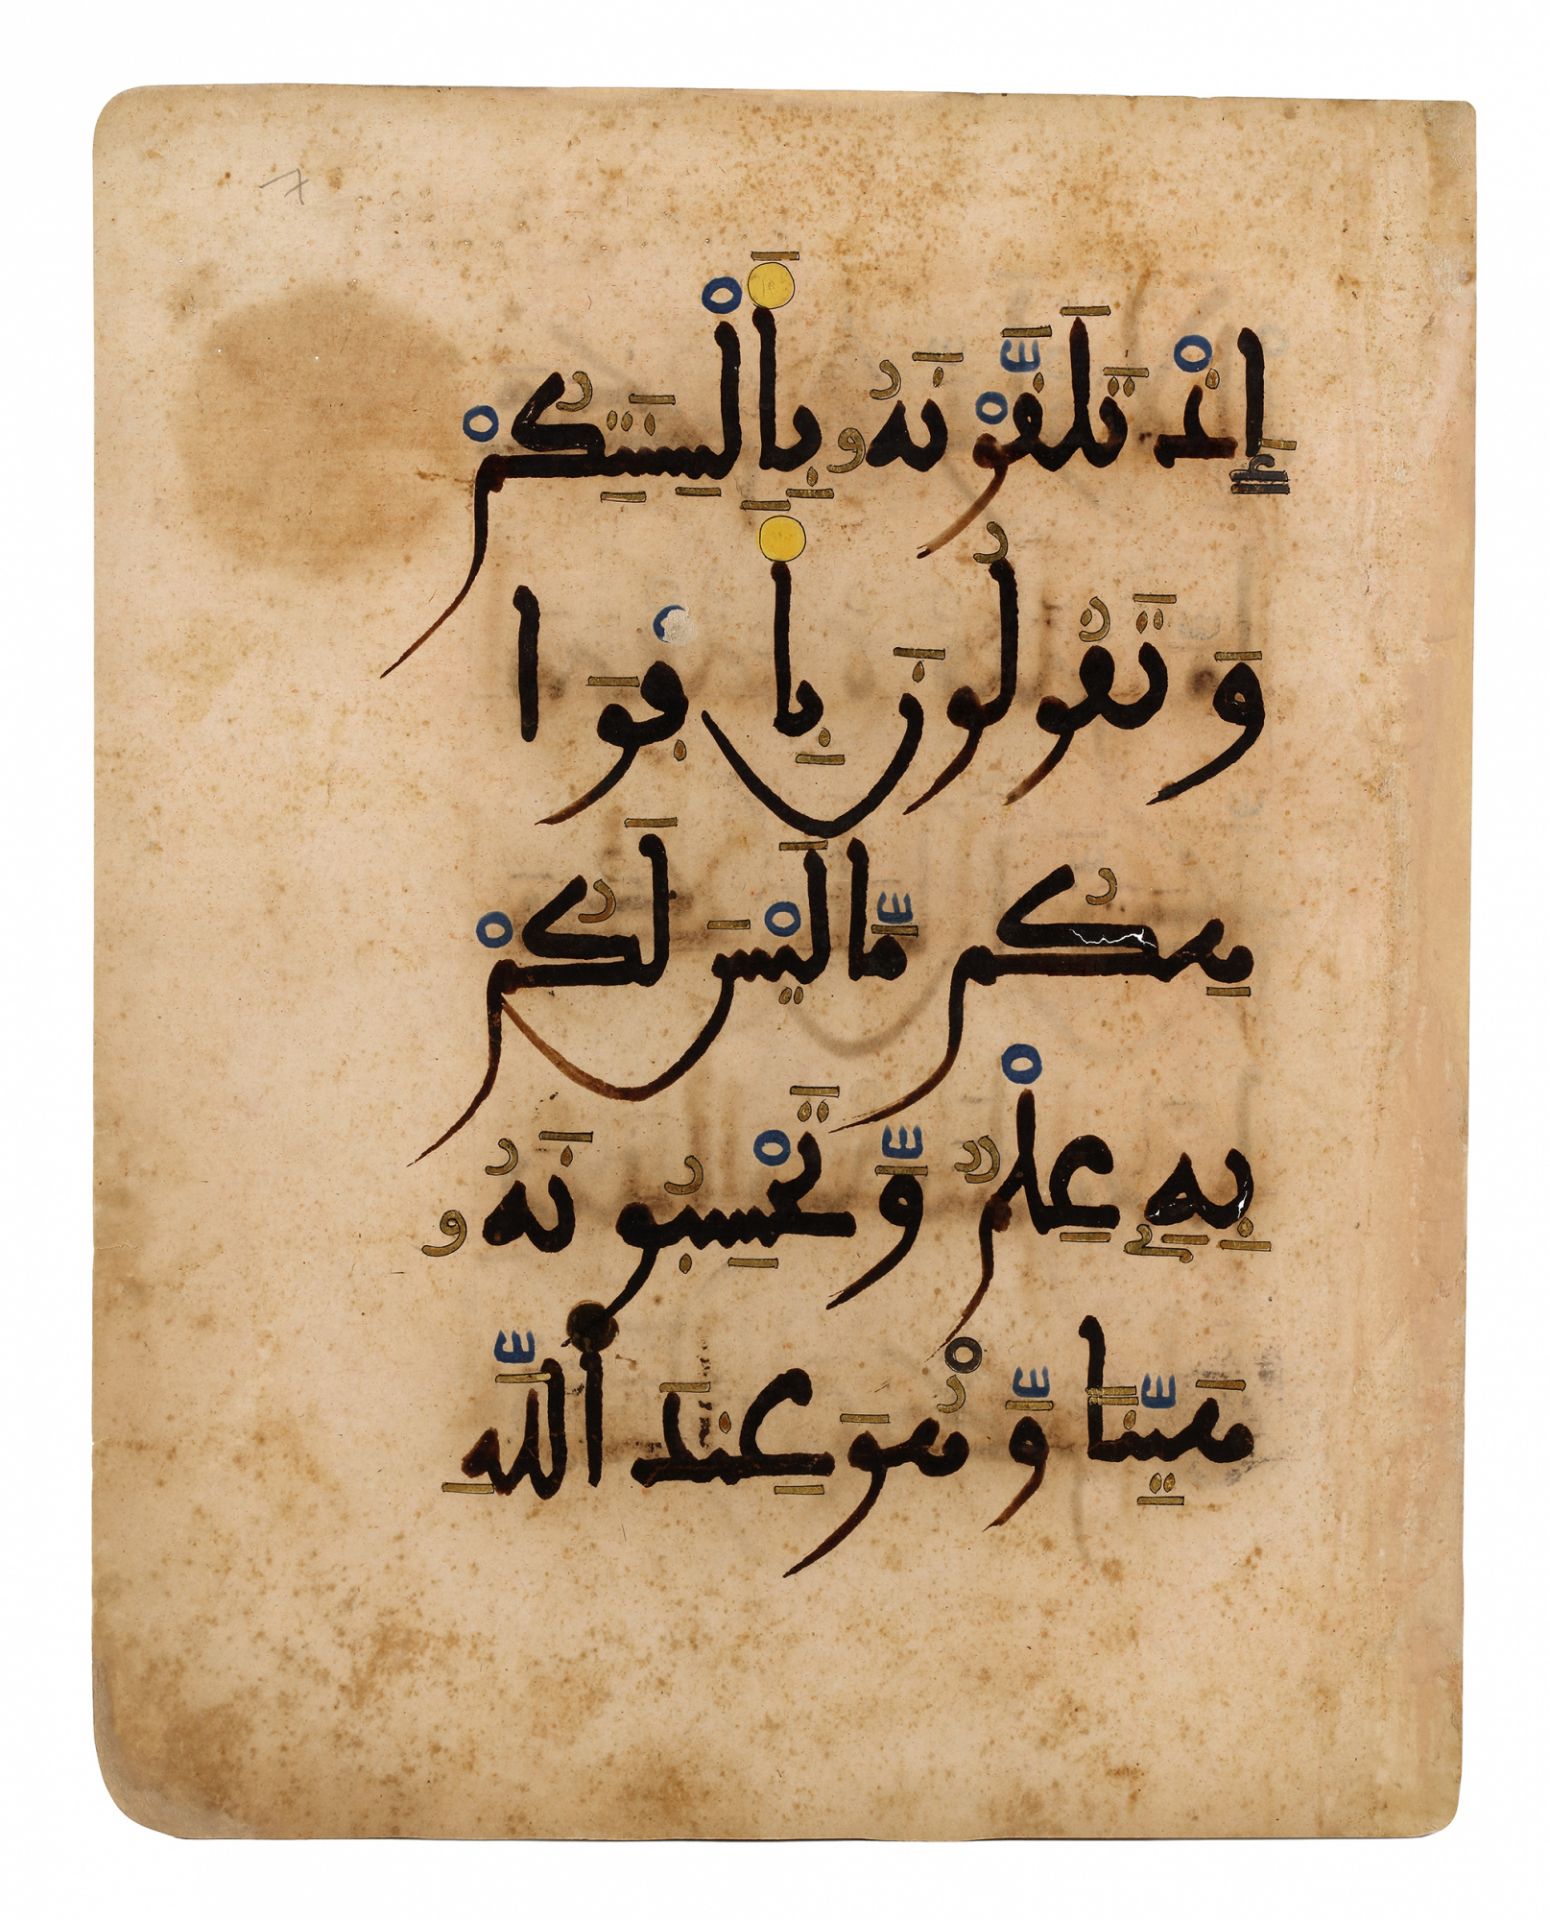 إِذْ تَلَقَّوْنَهُۥ بِأَلْسِنَتِكُمْ
وَتَقُولُونَ بِأَفْوَا
هِكُم مَّا لَيْسَ لَكُمْ
بِهِۦ عِلْمٌ وَّتَحْسِبُونَهُۥ
هَيِّنًا وَّهُوَ عِندَ اللَّهِ